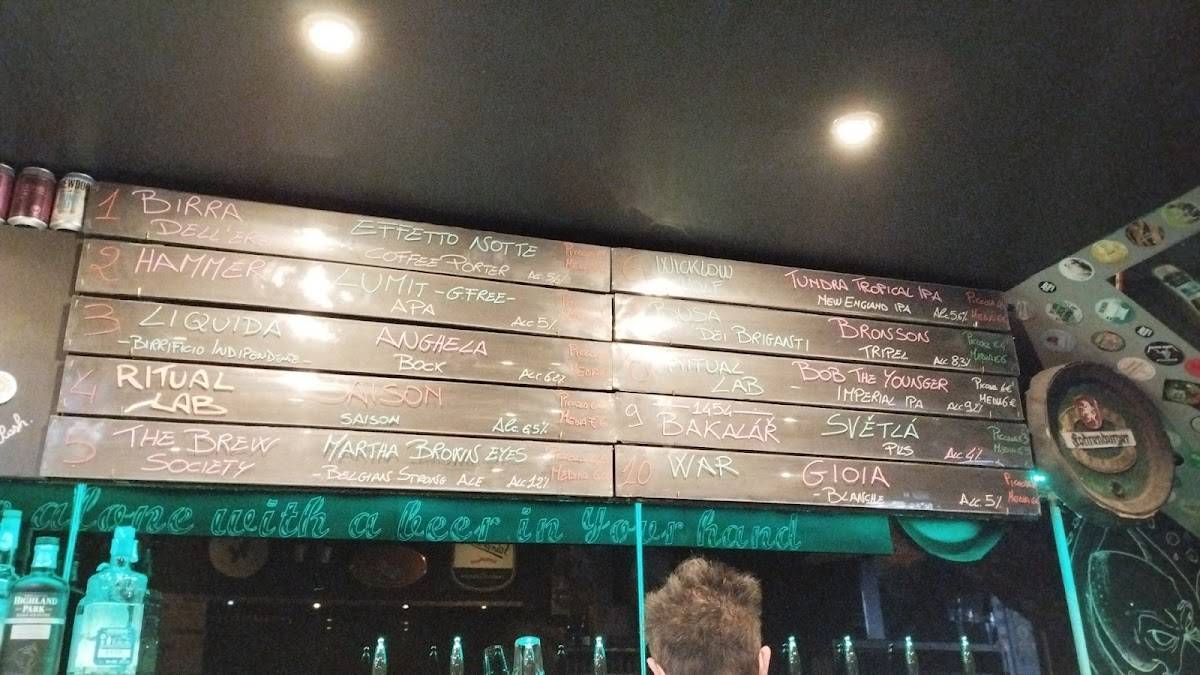 1 BIRRA
DELL'ERE
EFFETTO NOTTE
COFFEE PORTER ALC 5%
2 HAMMER
LUMIT -G.FREE-
APA
ALC 5%
3 LIQUIDA
-BIRRIFICIO INDIPENDENTE-
ANGHELA
BOCK
4 RITUAL
LAB
SAISON
SAISON
ALC 6.5%
5 THE BREW
SOCIETY
MARTHA BROWN EYES
-BELGIAN STRONG ALE ALC 12%
MEDIA
WICKLOW
TUNDRA TROPICAL IPA
NEW ENGLAND IPA ALC 5,6%
MEDIA 6
DEI BRIGANTI
BRONSON
TRIPEL
ALC 8,3%
MEDIA 6
RITUAL
LAB
BOB THE YOUNGER
IMPERIAL IPA ALC 9,2%
PICCOLA 6€
MEDIA 6
9 1454
BAKALÁŘ
SVĚTLÁ
PILS
ALC 4%
PICCOLA 3
10 WAR
GIOIA
-BLANCHE
ALC 5%
alone with a beer in your hand
HIGHLAND
PARK